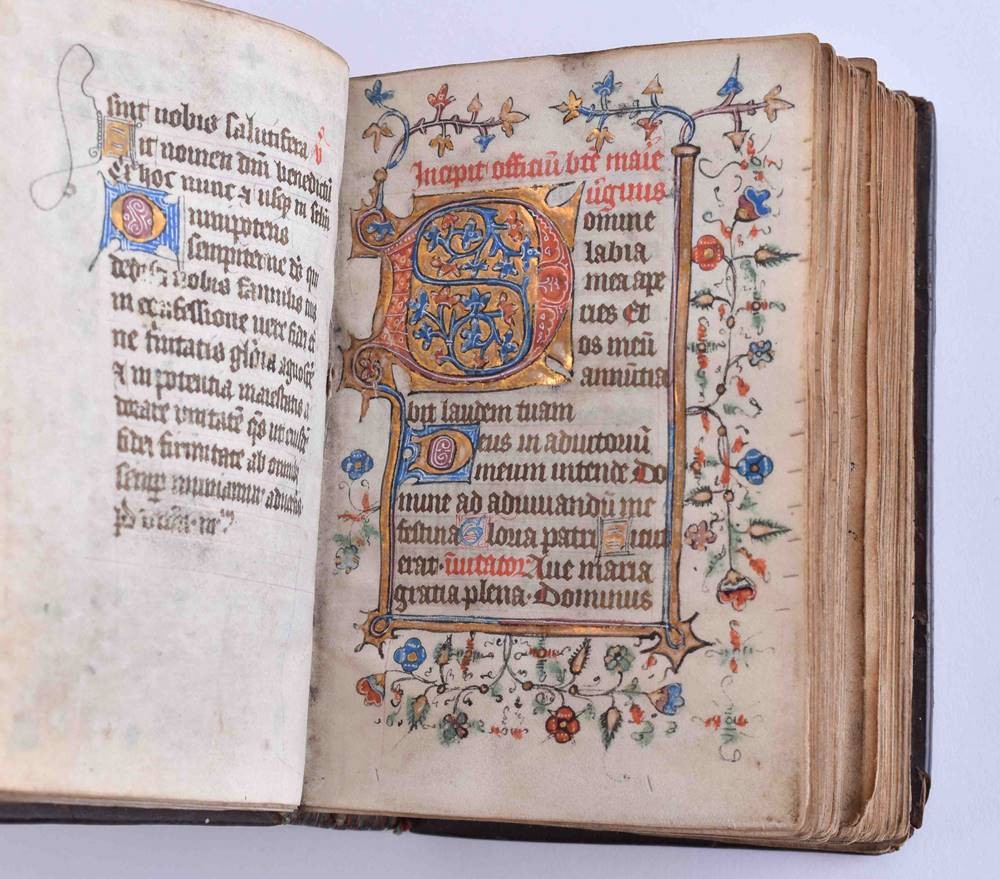 sint nobis salutifera v
Sit nomen dñi benedictū
Ex hoc nunc ⁊ usq in
Omnipotens
sempiterne ds qui
dedisti nobis famulis tuis
in confessione vere fidei e
ne trinitatis gloria agnosce
⁊ in potentia maiestatis a
dorare unitatē qs ut eiusdē
fidei firmitate ab omnib
semp muniamur aduersis
Incipit officiū bte marie
virginis
Domine
labia
mea ape
ries Et
os meū
annūtia
bit laudem tuam
Deus in adiutoriū
meum intende Do
mine ad adiuuandū me
festina Gloria patri Sicut
erat· īnvitator Aue maria
gratia plena· Dominus